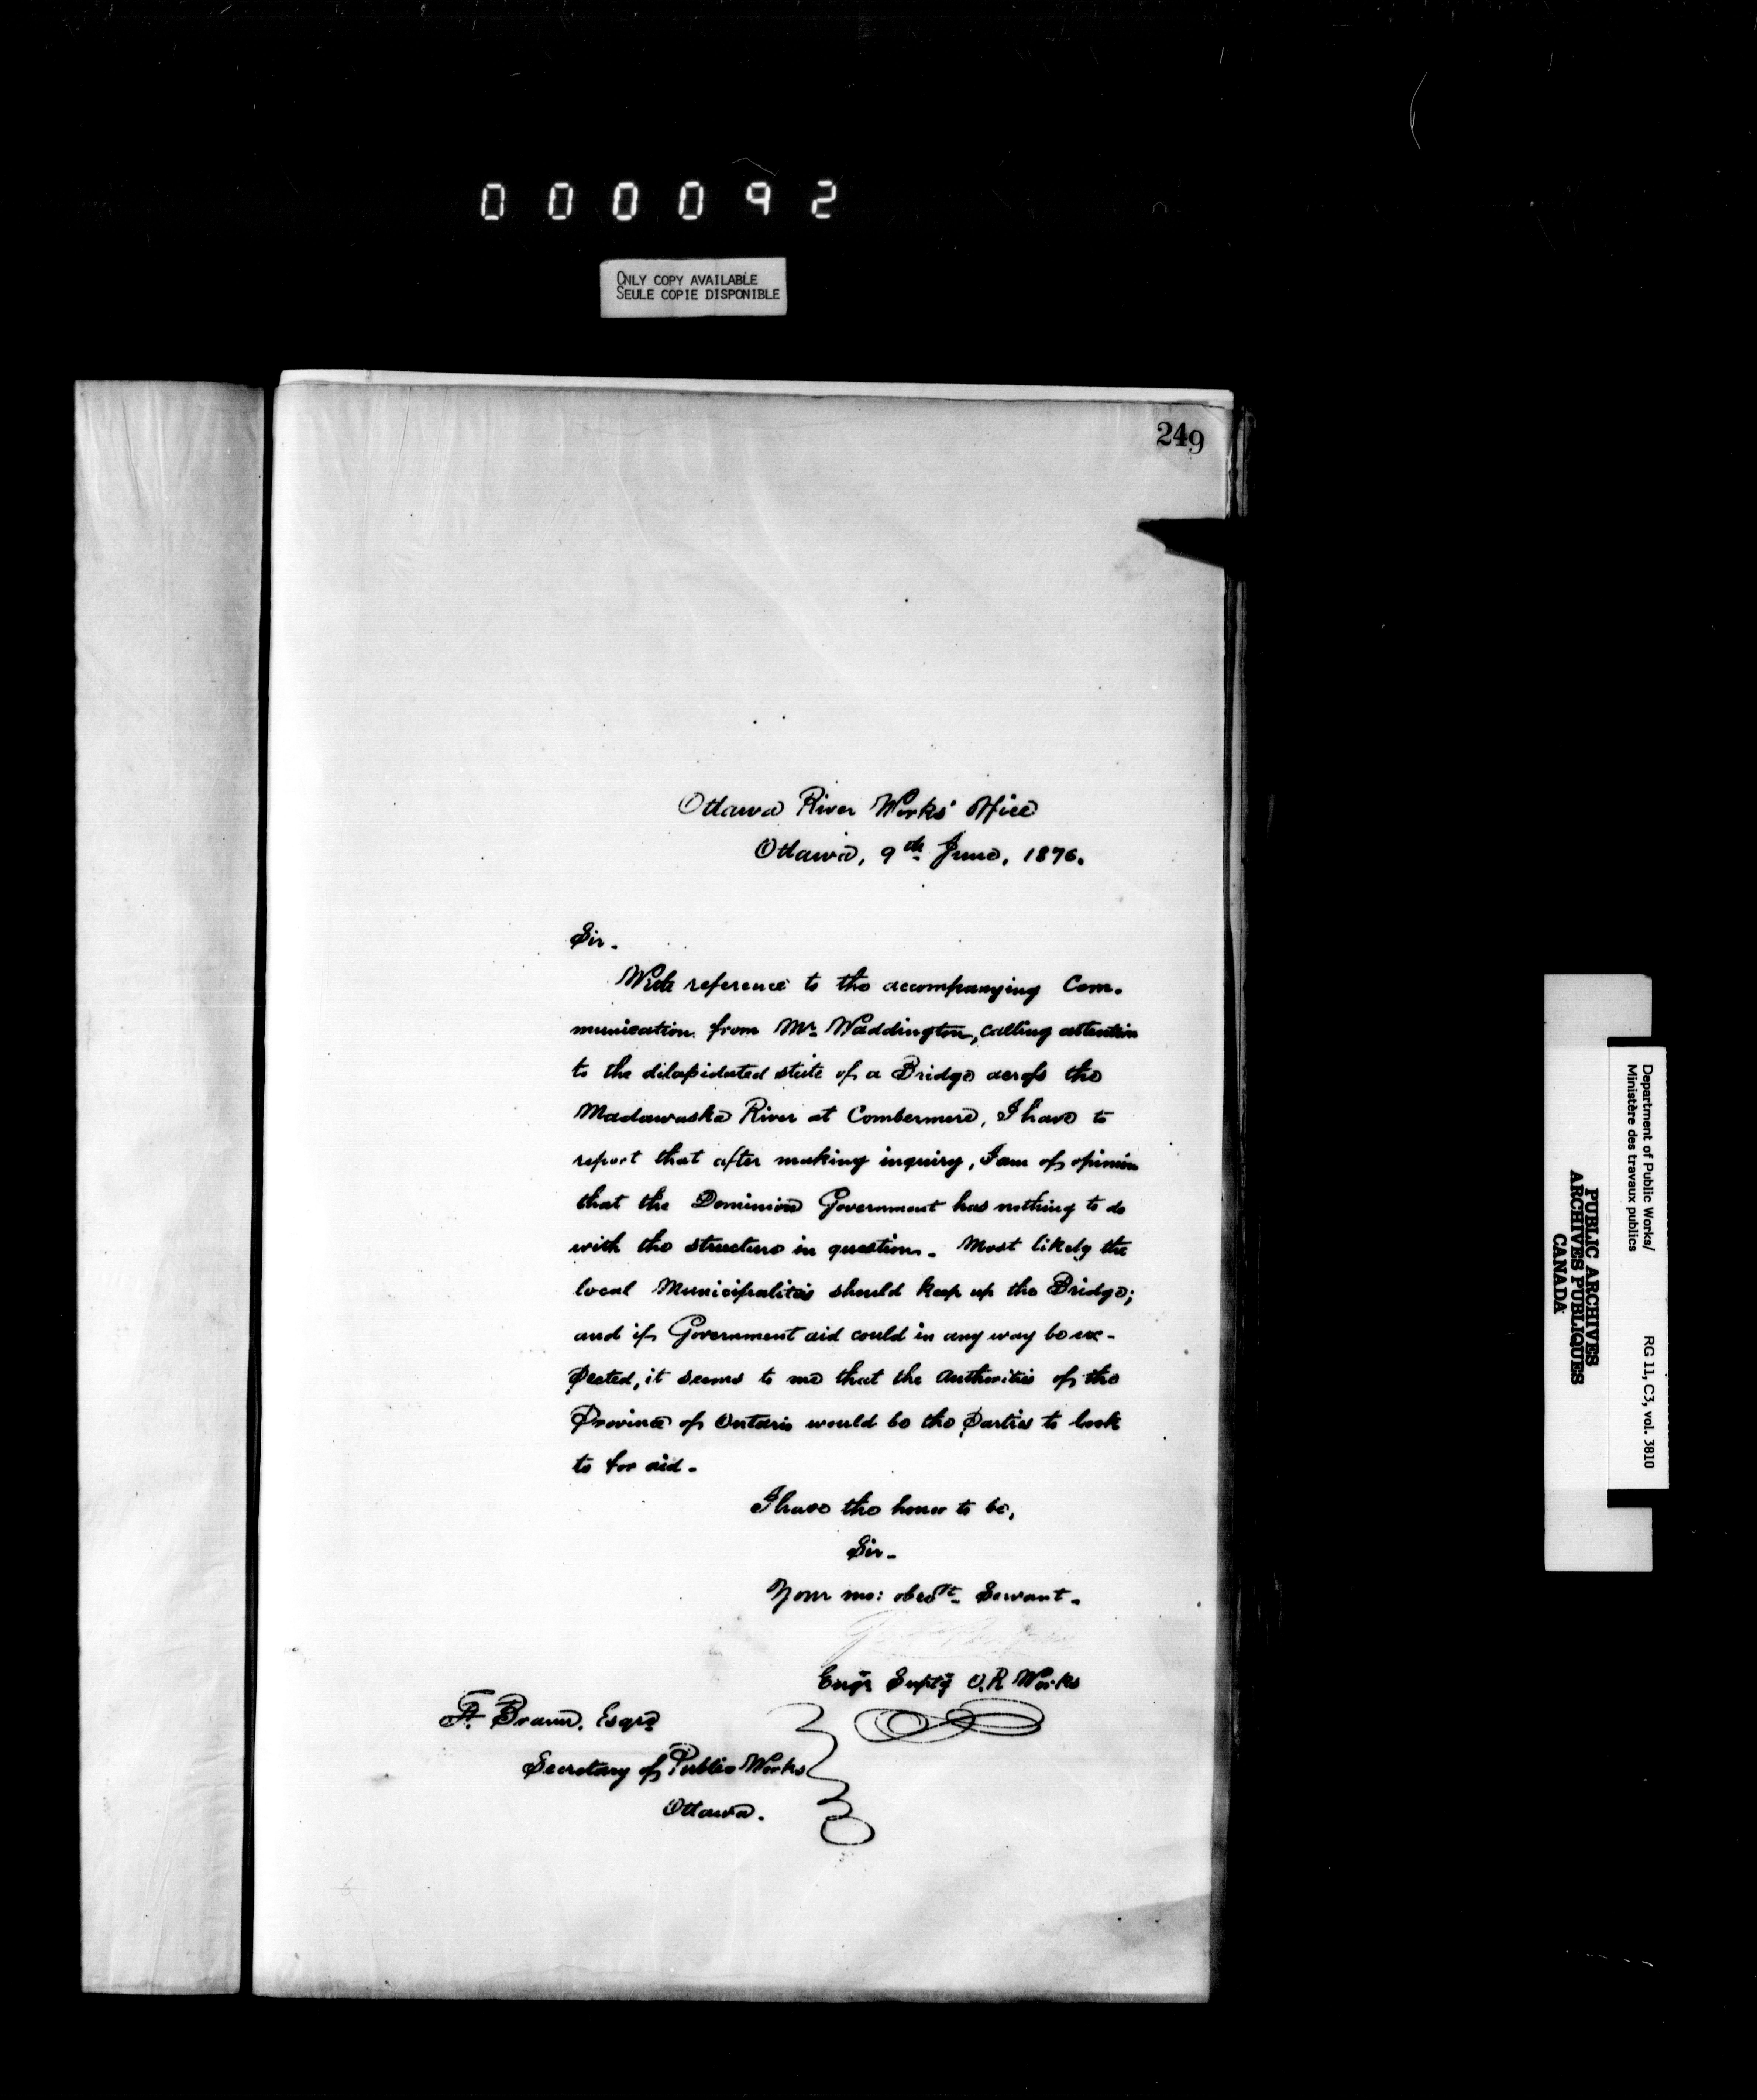 000092
ONLY COPY AVAILABLE
SEULE COPIE DISPONIBLE
249
Ottawa River Works' Office
Ottawa, 9th June, 1876.
Sir.
With reference to the accompanying Com-
munication from Mr. Waddington, calling attention
to the dilapidated state of a Bridge across the
Madawaska River at Combermere, I have to
report that after making inquiry, I am of opinion
that the Dominion Government has nothing to do
with the structure in question. Most likely the
local Municipalities should keep up the Bridge;
and if Government aid could in any way be ex-
pected, it seems to me that the authorities of the
Province of Ontario would be the parties to look
to for aid.
I have the honor to be,
Sir.
Your mo: obedt. Servant.
Engr. Supt'g O.R Works
F. Braun, Esqre.
Secretary of Public Works
Ottawa.
Department of Public Works/
Ministère des travaux publics
RG 11, C3, vol. 3810
PUBLIC ARCHIVES
ARCHIVES PUBLIQUES
CANADA